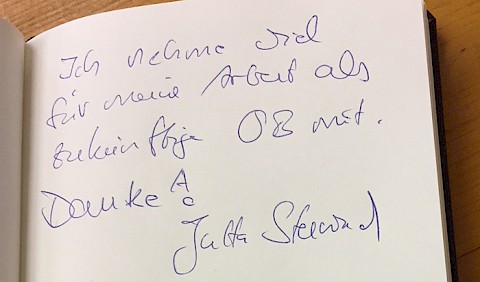 Ich nehme viel
für meine Arbeit als
zukünftige OB mit.
Danke!
Jutta Steinruck